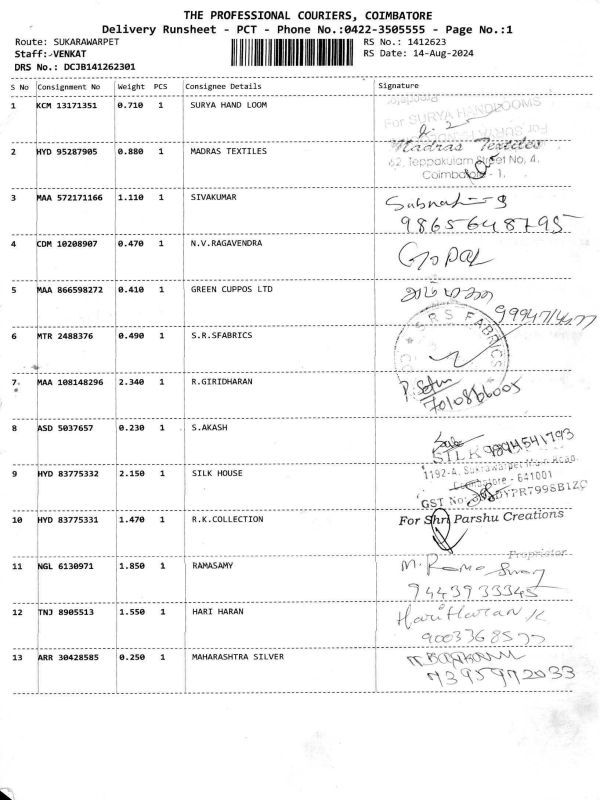 THE PROFESSIONAL COURIERS, COIMBATORE
Delivery Runsheet - PCT - Phone No.:0422-3505555 - Page No.:1
Route: SUKARAWARPET RS No.: 1412623
Staff: VENKAT RS Date: 14-Aug-2024
DRS No.: DCJB141262301
S No Consignment No Weight PCS Consignee Details Signature
1 KCM 13171351 0.710 1 SURYA HAND LOOM
For SURYA HANDLOOMS
2 HYD 95287905 0.880 1 MADRAS TEXTILES Madras Textiles
62, Teppakulam Street No, 4,
Coimbatore - 1.
3 MAA 572171166 1.110 1 SIVAKUMAR
9865648795
4 CDM 10208907 0.470 1 N.V.RAGAVENDRA Gopal
5 MAA 866598272 0.410 1 GREEN CUPPOS LTD
6 MTR 2488376 0.490 1 S.R.SFABRICS SRS FABRICS
7 MAA 108148296 2.340 1 R.GIRIDHARAN
7010866005
8 ASD 5037657 0.230 1 S.AKASH
9894541793
9 HYD 83775332 2.150 1 SILK HOUSE SILK
1192-A, Sukrawarpet Main Road,
Coimbatore - 641001
GST No:
10 HYD 83775331 1.470 1 R.K.COLLECTION For Shri Parshu Creations
Proprietor
11 NGL 6130971 1.850 1 RAMASAMY M. Ramaswamy
9443933345
12 TNJ 8905513 1.550 1 HARI HARAN HariHaran K
9003368577
13 ARR 30428585 0.250 1 MAHARASHTRA SILVER
7395972033